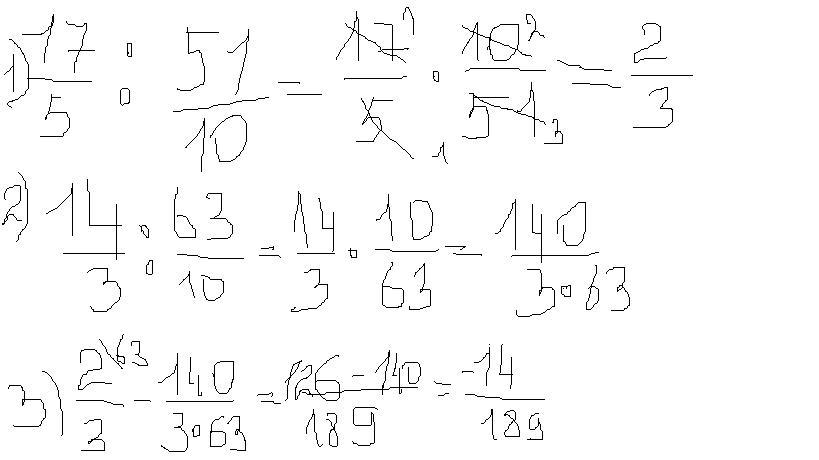 1) 17/5 : 51/10 = 17¹/5₁ · 10²/51₃ = 2/3
2) 14/3 : 63/10 = 14/3 · 10/63 = 140/3·63
3) 2\63/3 - 140/3·63 = 126-140/189 = -14/189